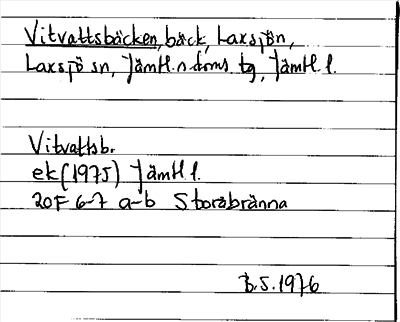 Vitvattsbäcken, bäck, Laxsjön,
Laxsjö sn, Jämtl. n. doms. tg, Jämtl. l.
Vitvattsb.
ek (1975) Jämtl l.
20F 6-7 a-b Storåbränna
B.S. 1976